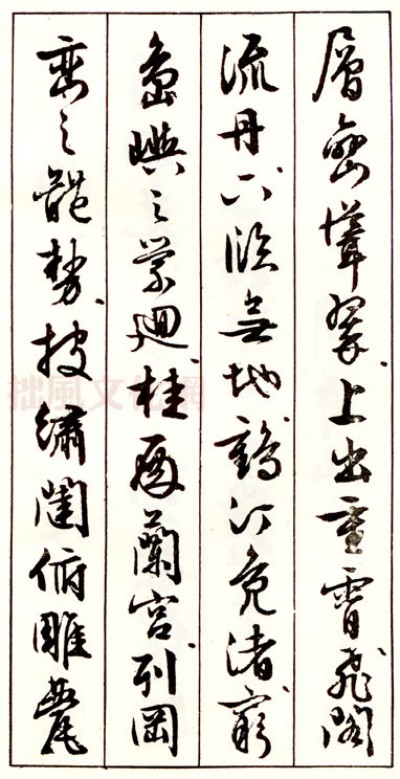 層巒聳翠上出重霄飛閣
流丹下臨無地鶴汀鳧渚窮
島嶼之縈迴桂殿蘭宮列岡
巒之體勢披繡闥俯雕甍
拙風文化網